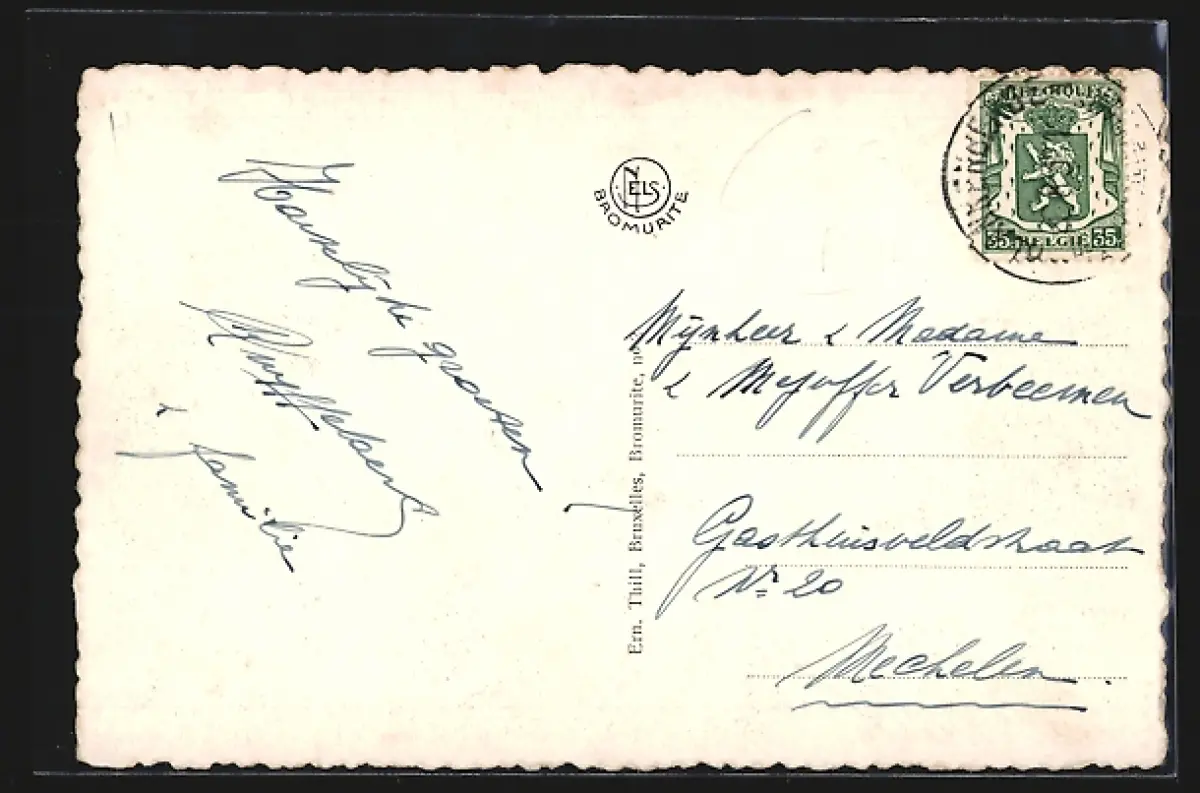 Hartelijke groeten
& familie
NELS
BROMURITE
Ern. Thill, Bruxelles, Bromurite, n°
BELGIE
35c 35c
Mijnheer & Madame
& Mejuffer Verbeemen
Gasthuisveldstraat
Nr 20
Mechelen.